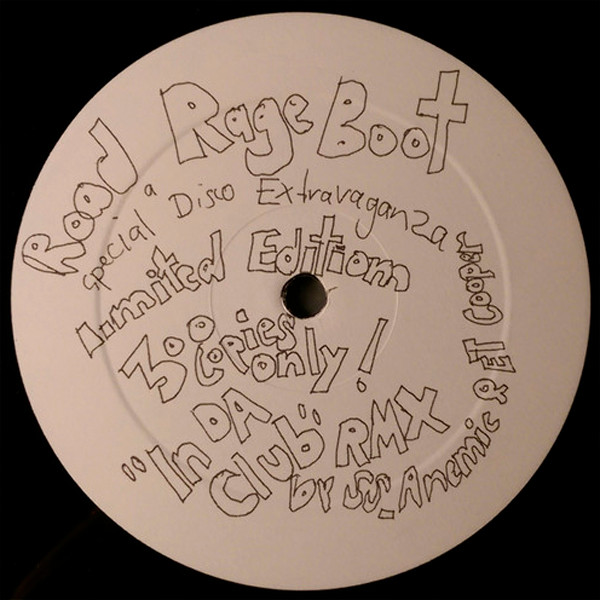 Road Rage Boot
special a Disco Extravaganza
Limited Edition
300 copies only!
"In DA Club" RMX
by SS_Anemic & ET Cooper